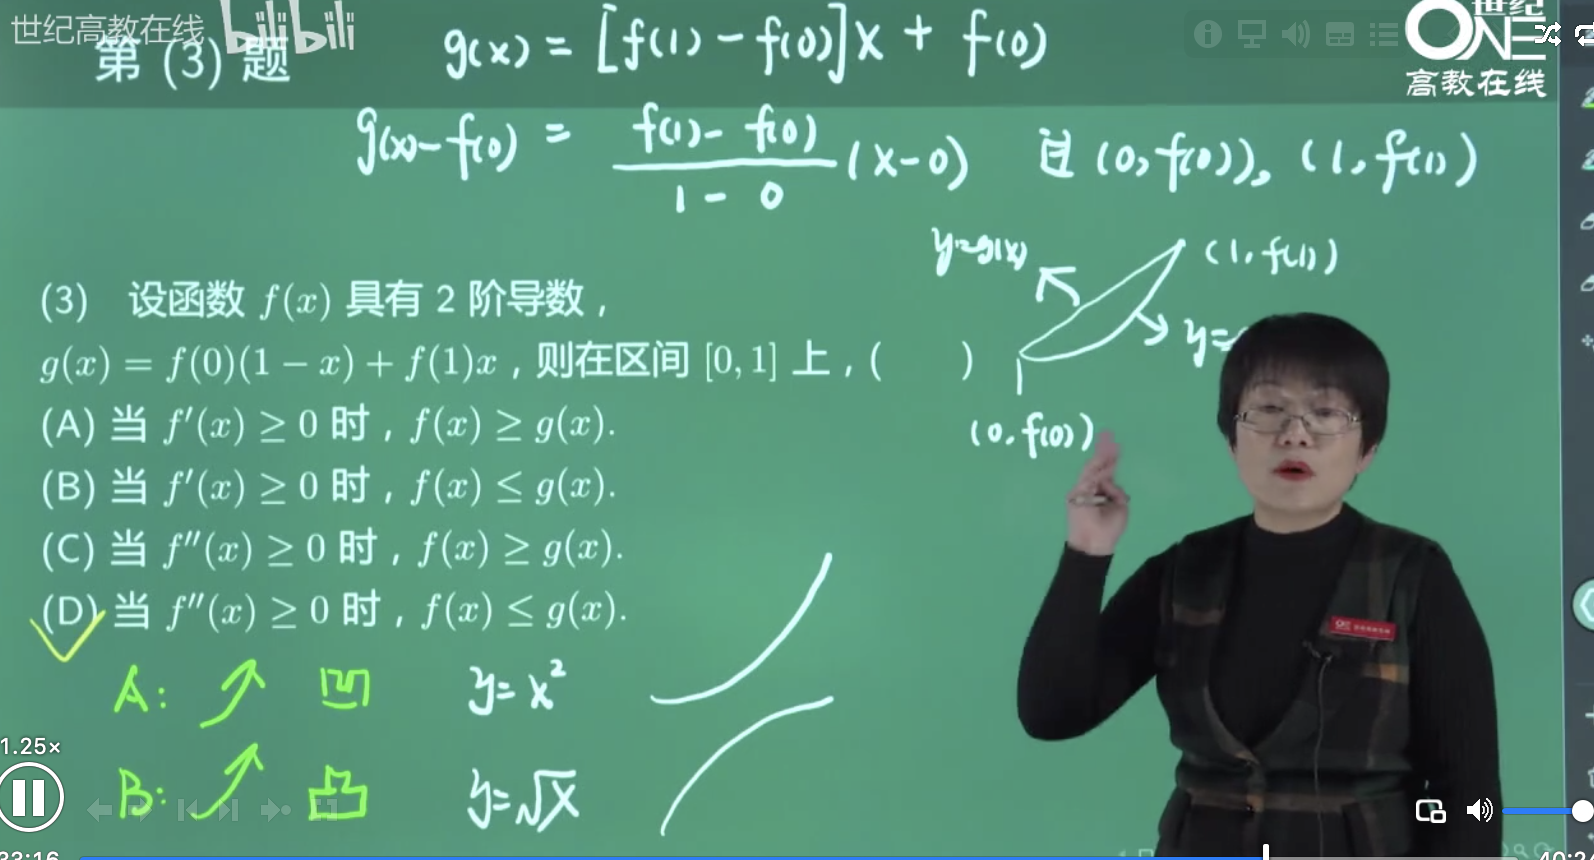 世纪高教在线 bilibili
世纪
ONE
高教在线
第 (3) 题
g(x) = [f(1) - f(0)]x + f(0)
g(x) - f(0) = \frac{f(1) - f(0)}{1 - 0} (x - 0) 且 (0, f(0)), (1, f(1))
y=g(x)
(1, f(1))
y=
(0, f(0))
(3) 设函数 f(x) 具有 2 阶导数，
g(x) = f(0)(1 − x) + f(1)x，则在区间 [0, 1] 上，( )
(A) 当 f′(x) ≥ 0 时，f(x) ≥ g(x).
(B) 当 f′(x) ≥ 0 时，f(x) ≤ g(x).
(C) 当 f″(x) ≥ 0 时，f(x) ≥ g(x).
(D) 当 f″(x) ≥ 0 时，f(x) ≤ g(x).
A: 凹 y = x²
B: 凸 y = √x
1.25×
33:16